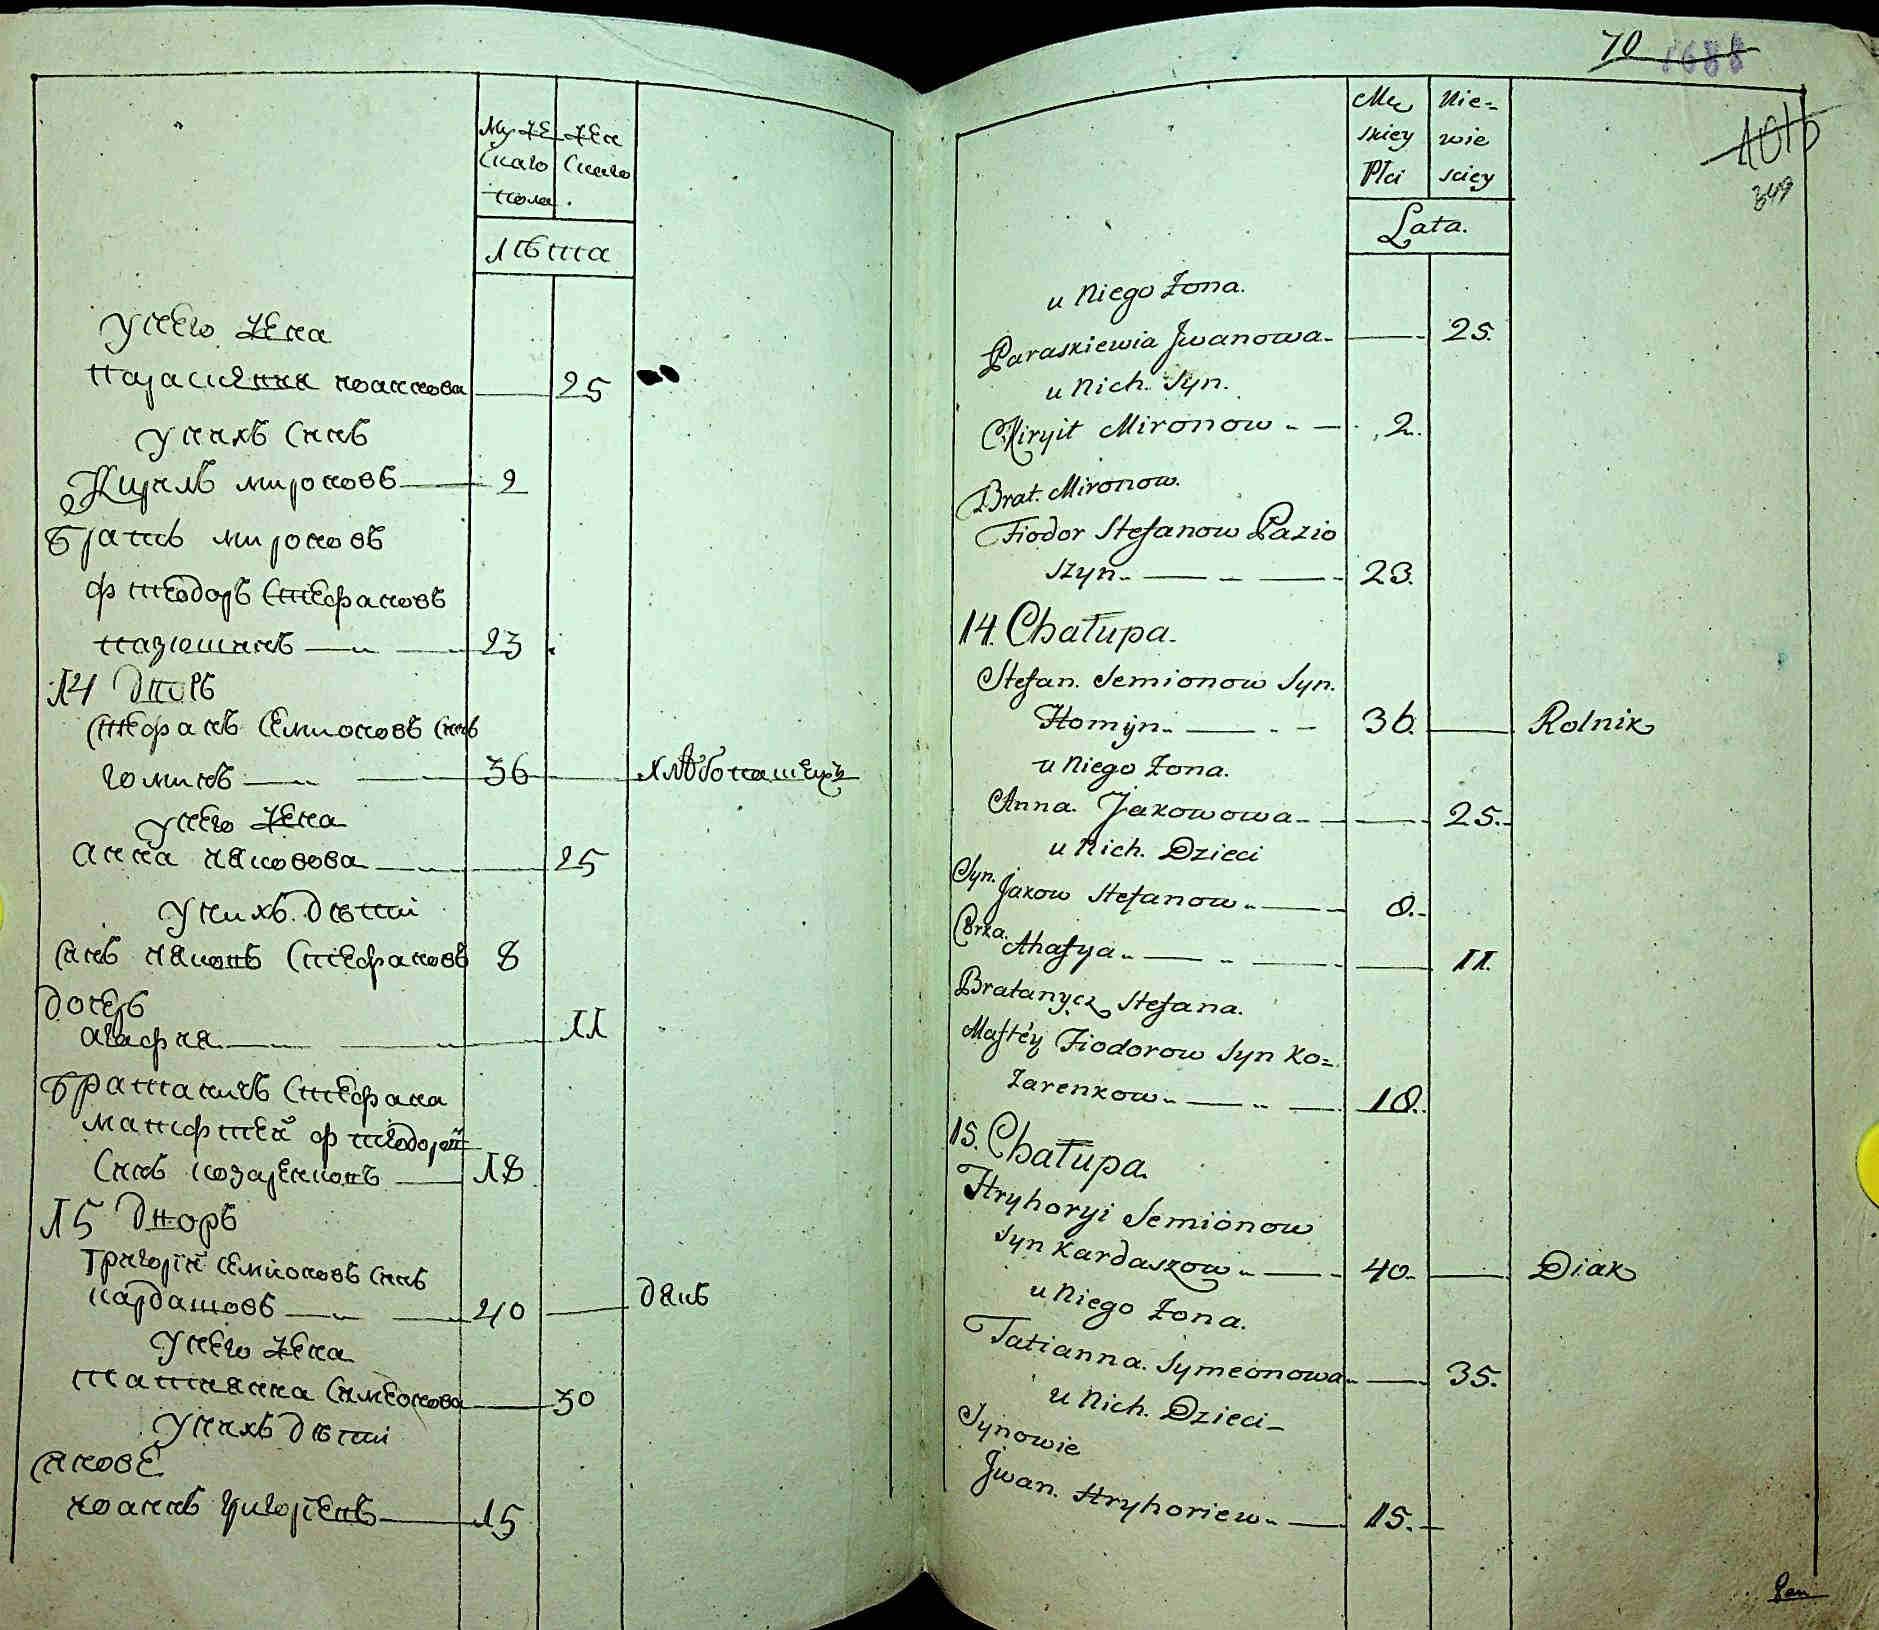 Муже
скаго
пола
Жен
скаго
.
Лѣта
У него жена
Параскевия Иоаннова — 25
У нихъ сынъ
Кирилъ Мироновъ — 2
Братъ Мироновъ
Фтеодоръ Стефановъ
Пазюшинъ — 23
14 Дворъ
Стефанъ Семионовъ сынъ
Гоминъ — 36 — хлѣбопашецъ
У него жена
Анна Яковова — 25
У нихъ дѣти
Сынъ Яковъ Стефановъ 8
Дочерь
Агафия — 11
Братаничъ Стефана
Матфтей Фтеодоровъ
сынъ Козаренковъ — 18
15 Дворъ
Григорїй Семїоновъ сынъ
Кардашовъ — 40 — дякъ
У него жена
Татиянна Симеонова — 30
У нихъ дѣти
Сынове
Иоаннъ Григорїевъ — 15
70 1688
101b
349
Mę
skiey
Płci
Nie-
wie
sciey
Lata.
u Niego Żona.
Paraskiewia Jwanowa — 25.
u Nich. Syn.
Kiryit Mironow — 2.
Brat. Mironow.
Fiodor Stefanow Pazio
szyn. — 23.
14. Chałupa.
Stefan. Semionow Syn.
Homyn. — 36. — Rolnik
u Niego Żona.
Anna. Jakowowa — 25.
u Nich. Dzieci
Syn. Jakow Stefanow — 8.
Corka. Ahafya — 11.
Bratanycz Stefana.
Maftéy Fiodorow Syn Ko=
zarenkow — 18.
15. Chałupa.
Hryhoryi Semionow
Syn Kardaszow — 40. — Diak
u Niego Żona.
Tatianna. Symeonowa — 35.
u Nich. Dzieci —
Synowie
Jwan. Hryhoriew — 15.